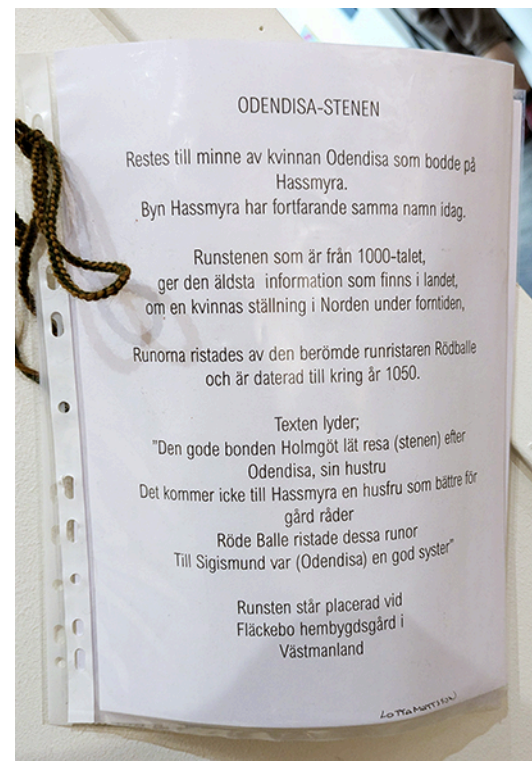 ODENDISA-STENEN
Restes till minne av kvinnan Odendisa som bodde på
Hassmyra.
Byn Hassmyra har fortfarande samma namn idag.
Runstenen som är från 1000-talet,
ger den äldsta information som finns i landet,
om en kvinnas ställning i Norden under forntiden,
Runorna ristades av den berömde runristaren Rödballe
och är daterad till kring år 1050.
Texten lyder;
"Den gode bonden Holmgöt lät resa (stenen) efter
Odendisa, sin hustru
Det kommer icke till Hassmyra en husfru som bättre för
gård råder
Röde Balle ristade dessa runor
Till Sigismund var (Odendisa) en god syster"
Runsten står placerad vid
Fläckebo hembygdsgård i
Västmanland